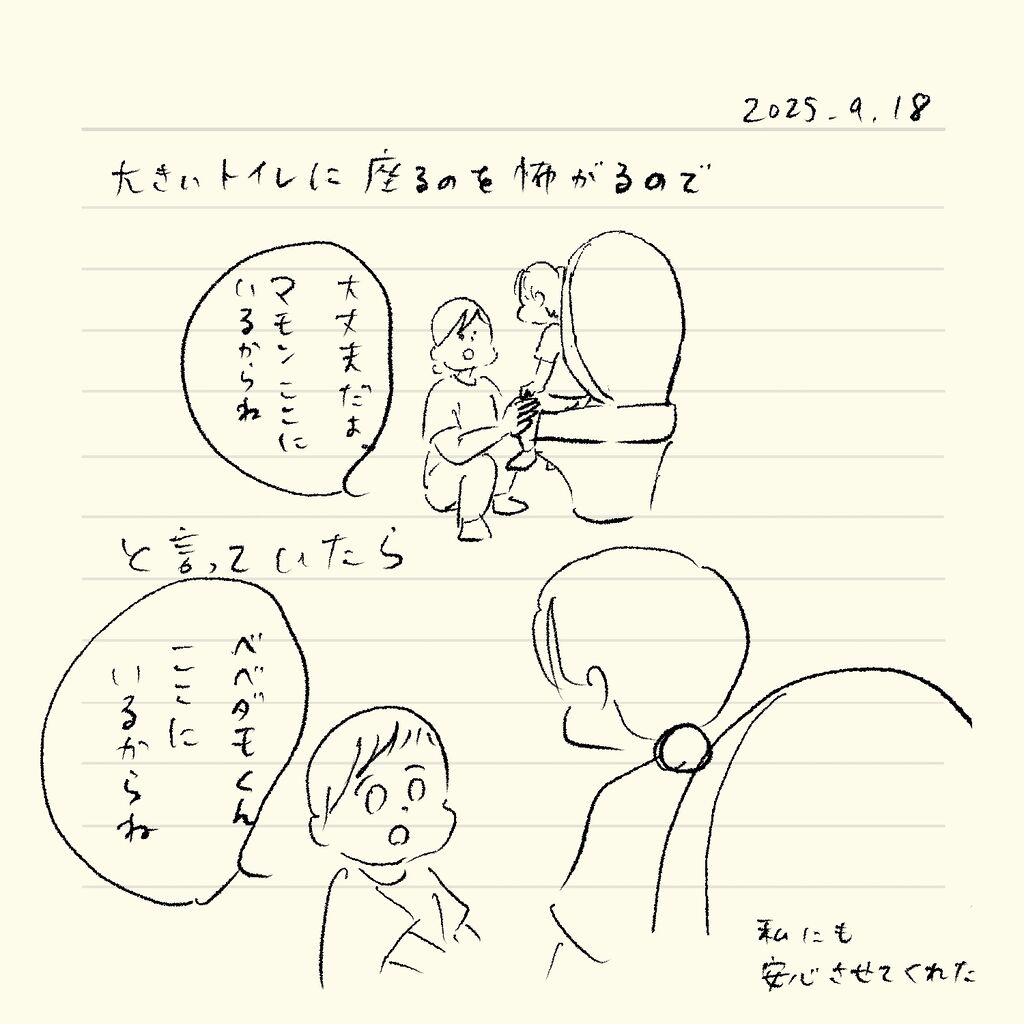 2025.9.18
大きいトイレに座るのを怖がるので
大丈夫だよ。
マモンここに
いるからね
と言っていたら
ベベダモくん
ここに
いるからね
私にも
安心させてくれた